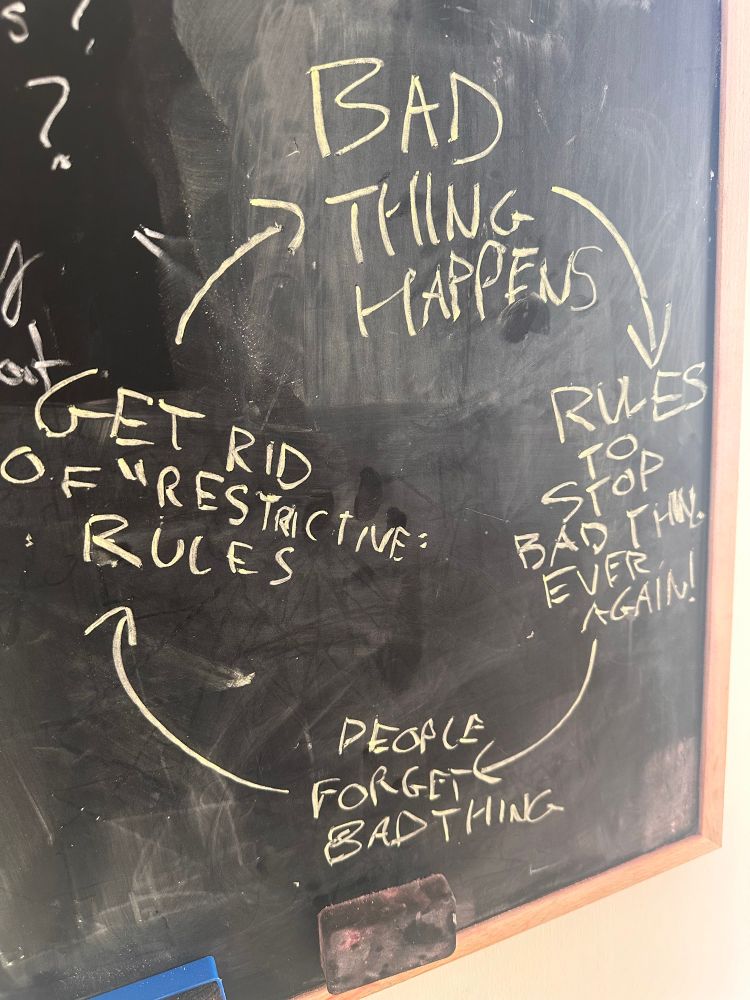 s?
?
BAD
THING
HAPPENS
RULES
TO
STOP
BAD THIN
EVER
AGAIN!
PEOPLE
FORGET
BAD THING
GET RID
OF "RESTRICTIVE"
RULES